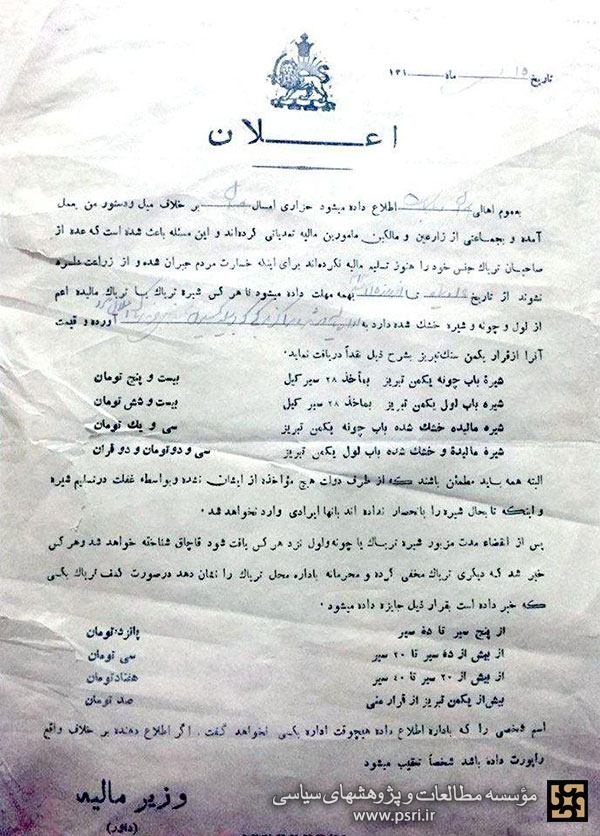 تاریخ ۱۵ ماه ۱۳۱
اعلان
بعموم اهالی اطلاع داده میشود جزاری امسال بر خلاف میل و دستور من بعمل
آمده و بجماعتی از زارعین و مالکین مامورین مالیه تعدیاتی کرده‌اند و این مسئله باعث شده است که عده از
صاحبان تریاك جنس خود را هنوز تسلیم مالیه نکرده‌اند برای اینکه خسارت مردم جبران شده و از زراعت دلسرد
نشوند از تاریخ تا بهمه مهلت داده میشود تا هر کس شیره تریاك یا تریاك مالیده اعم
از لول و چونه و شیره خشك شده دارد به آورده و قیمت
آنرا از قرار یکمن سنك تبریز بشرح ذیل نقداً دریافت نماید:
شیرهٔ باب چونه یکمن تبریز بمأخذ ۲۸ سیر کیل بیست و پنج تومان
شیره باب لول یکمن تبریز بماخذ ۲۸ سیر کیل بیست و شش تومان
شیره مالیده خشك شده باب چونه یکمن تبریز سی و یك تومان
شیره مالیدهٔ و خشك شده باب لول یکمن تبریز سی و دو تومان و دو قران
البته همه باید مطمئن باشند که از طرف دولت هیچ مؤاخذه از ایشان نشده و بواسطه غفلت در تسلیم شیره
و اینکه تا بحال شیره را بانحصار نداده اند بانها ایرادی وارد نخواهد شد.
پس از انقضاء مدت مزبور شیره تریاك یا چونه و لول نزد هر کس یافت شود قاچاق شناخته خواهد شد و هر کس
خبر شد که دیگری تریاك مخفی کرده و محرمانه باداره محل تریاك را نشان دهد در صورت کشف تریاك بکسی
که خبر داده است بقرار ذیل جایزه داده میشود.
از پنج سیر تا ٥ سیر پانزده تومان
از بیش از ٥ سیر تا ۲۰ سیر سی تومان
از بیش از ۲۰ سیر تا ٤۰ سیر هفتاد تومان
بیش از یکمن تبریز از قرار منی صد تومان
اسم شخصی را که باداره اطلاع داده هیچوقت اداره بکسی نخواهد گفت. اگر اطلاع دهنده بر خلاف واقع
راپورت داده باشد شخصاً تعقیب میشود
وزیر مالیه
(داور)
مؤسسه مطالعات و پژوهشهای سیاسی
www.psri.ir